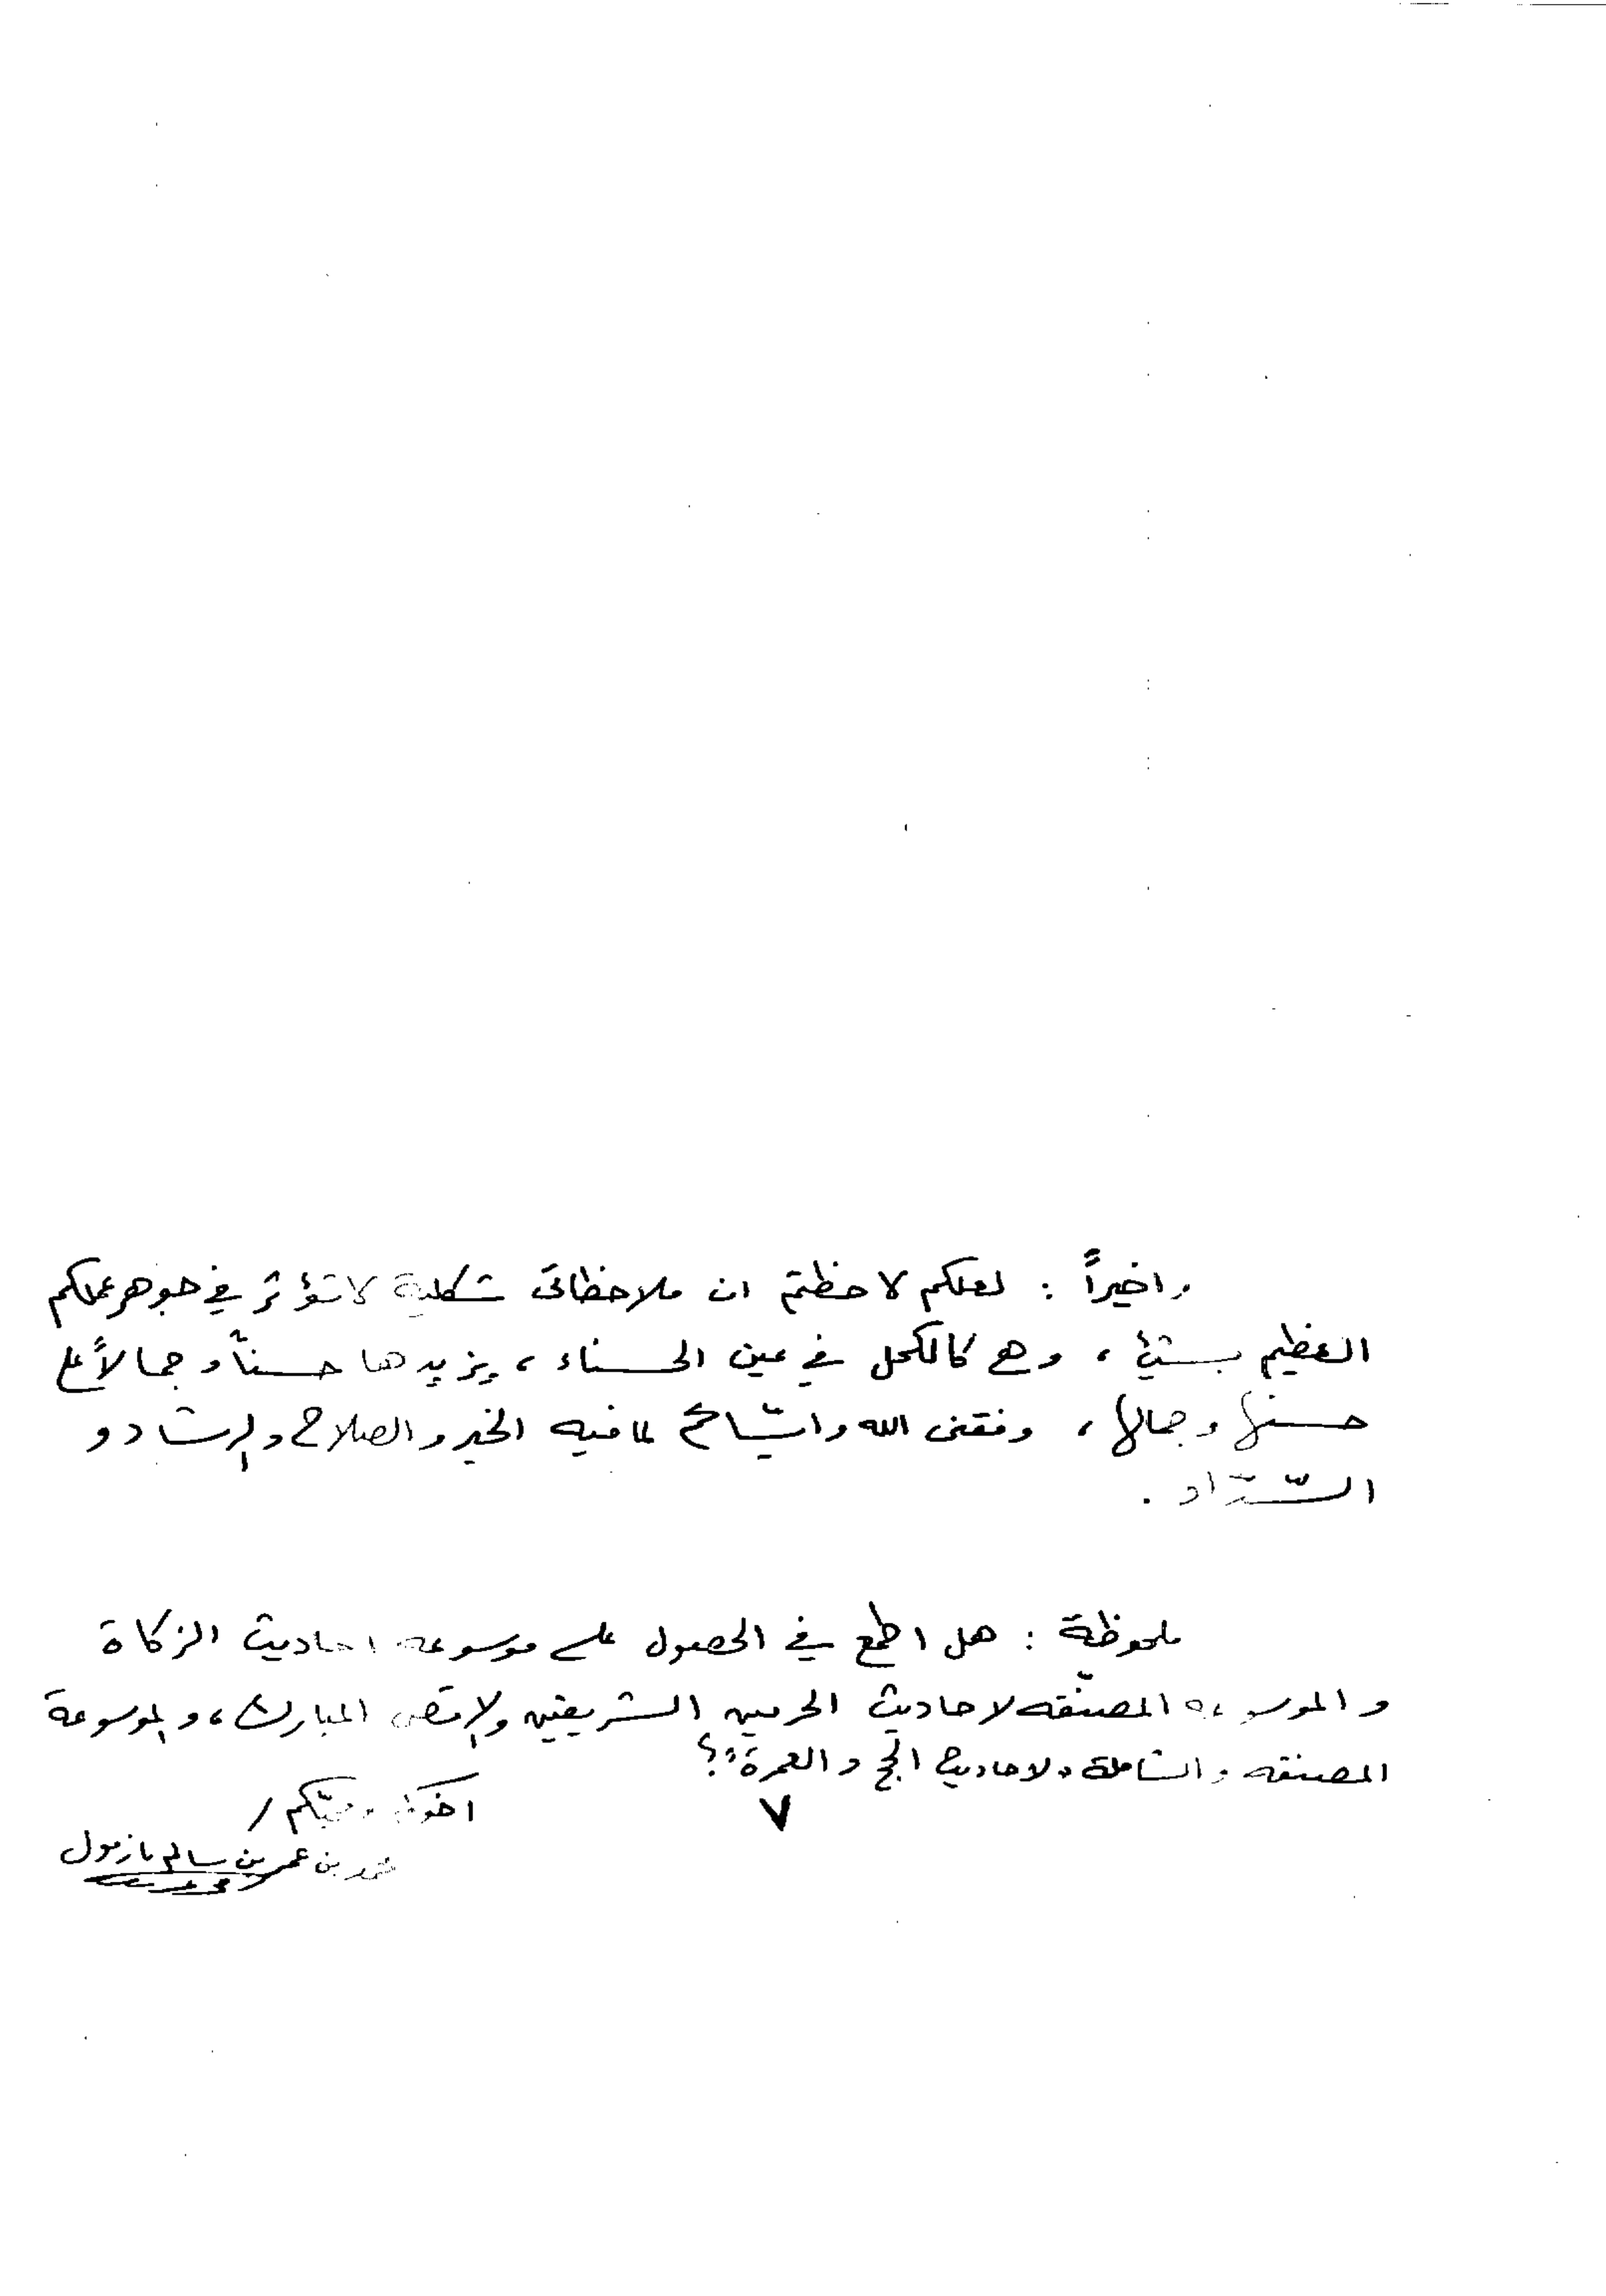 واخيراً : لعلكم لاحظتم ان ملاحظاتى شكلية لا تؤثر في جوهر عملكم
العظيم بشئ ، وهي كالكحل في عين الحسناء ، يزيدها حسناً وجمالاً على
حسنها وجمالها ، وفقنى الله واياكم لما فيه الخير والصلاح والرشاد و
السّداد .
ملحوظة : هل اطمع في الحصول على موسوعه احاديث الزكاة
والموسوعه المصنّفه لاحاديث الحرمين الشريفين والاقصى المبارك ، والموسوعة
المصنفه والشاملة لاحاديث الحج والعمرة ؟
٧
اخوكم ومحبّكم /
محمد بن عمر بن سالم بازمول